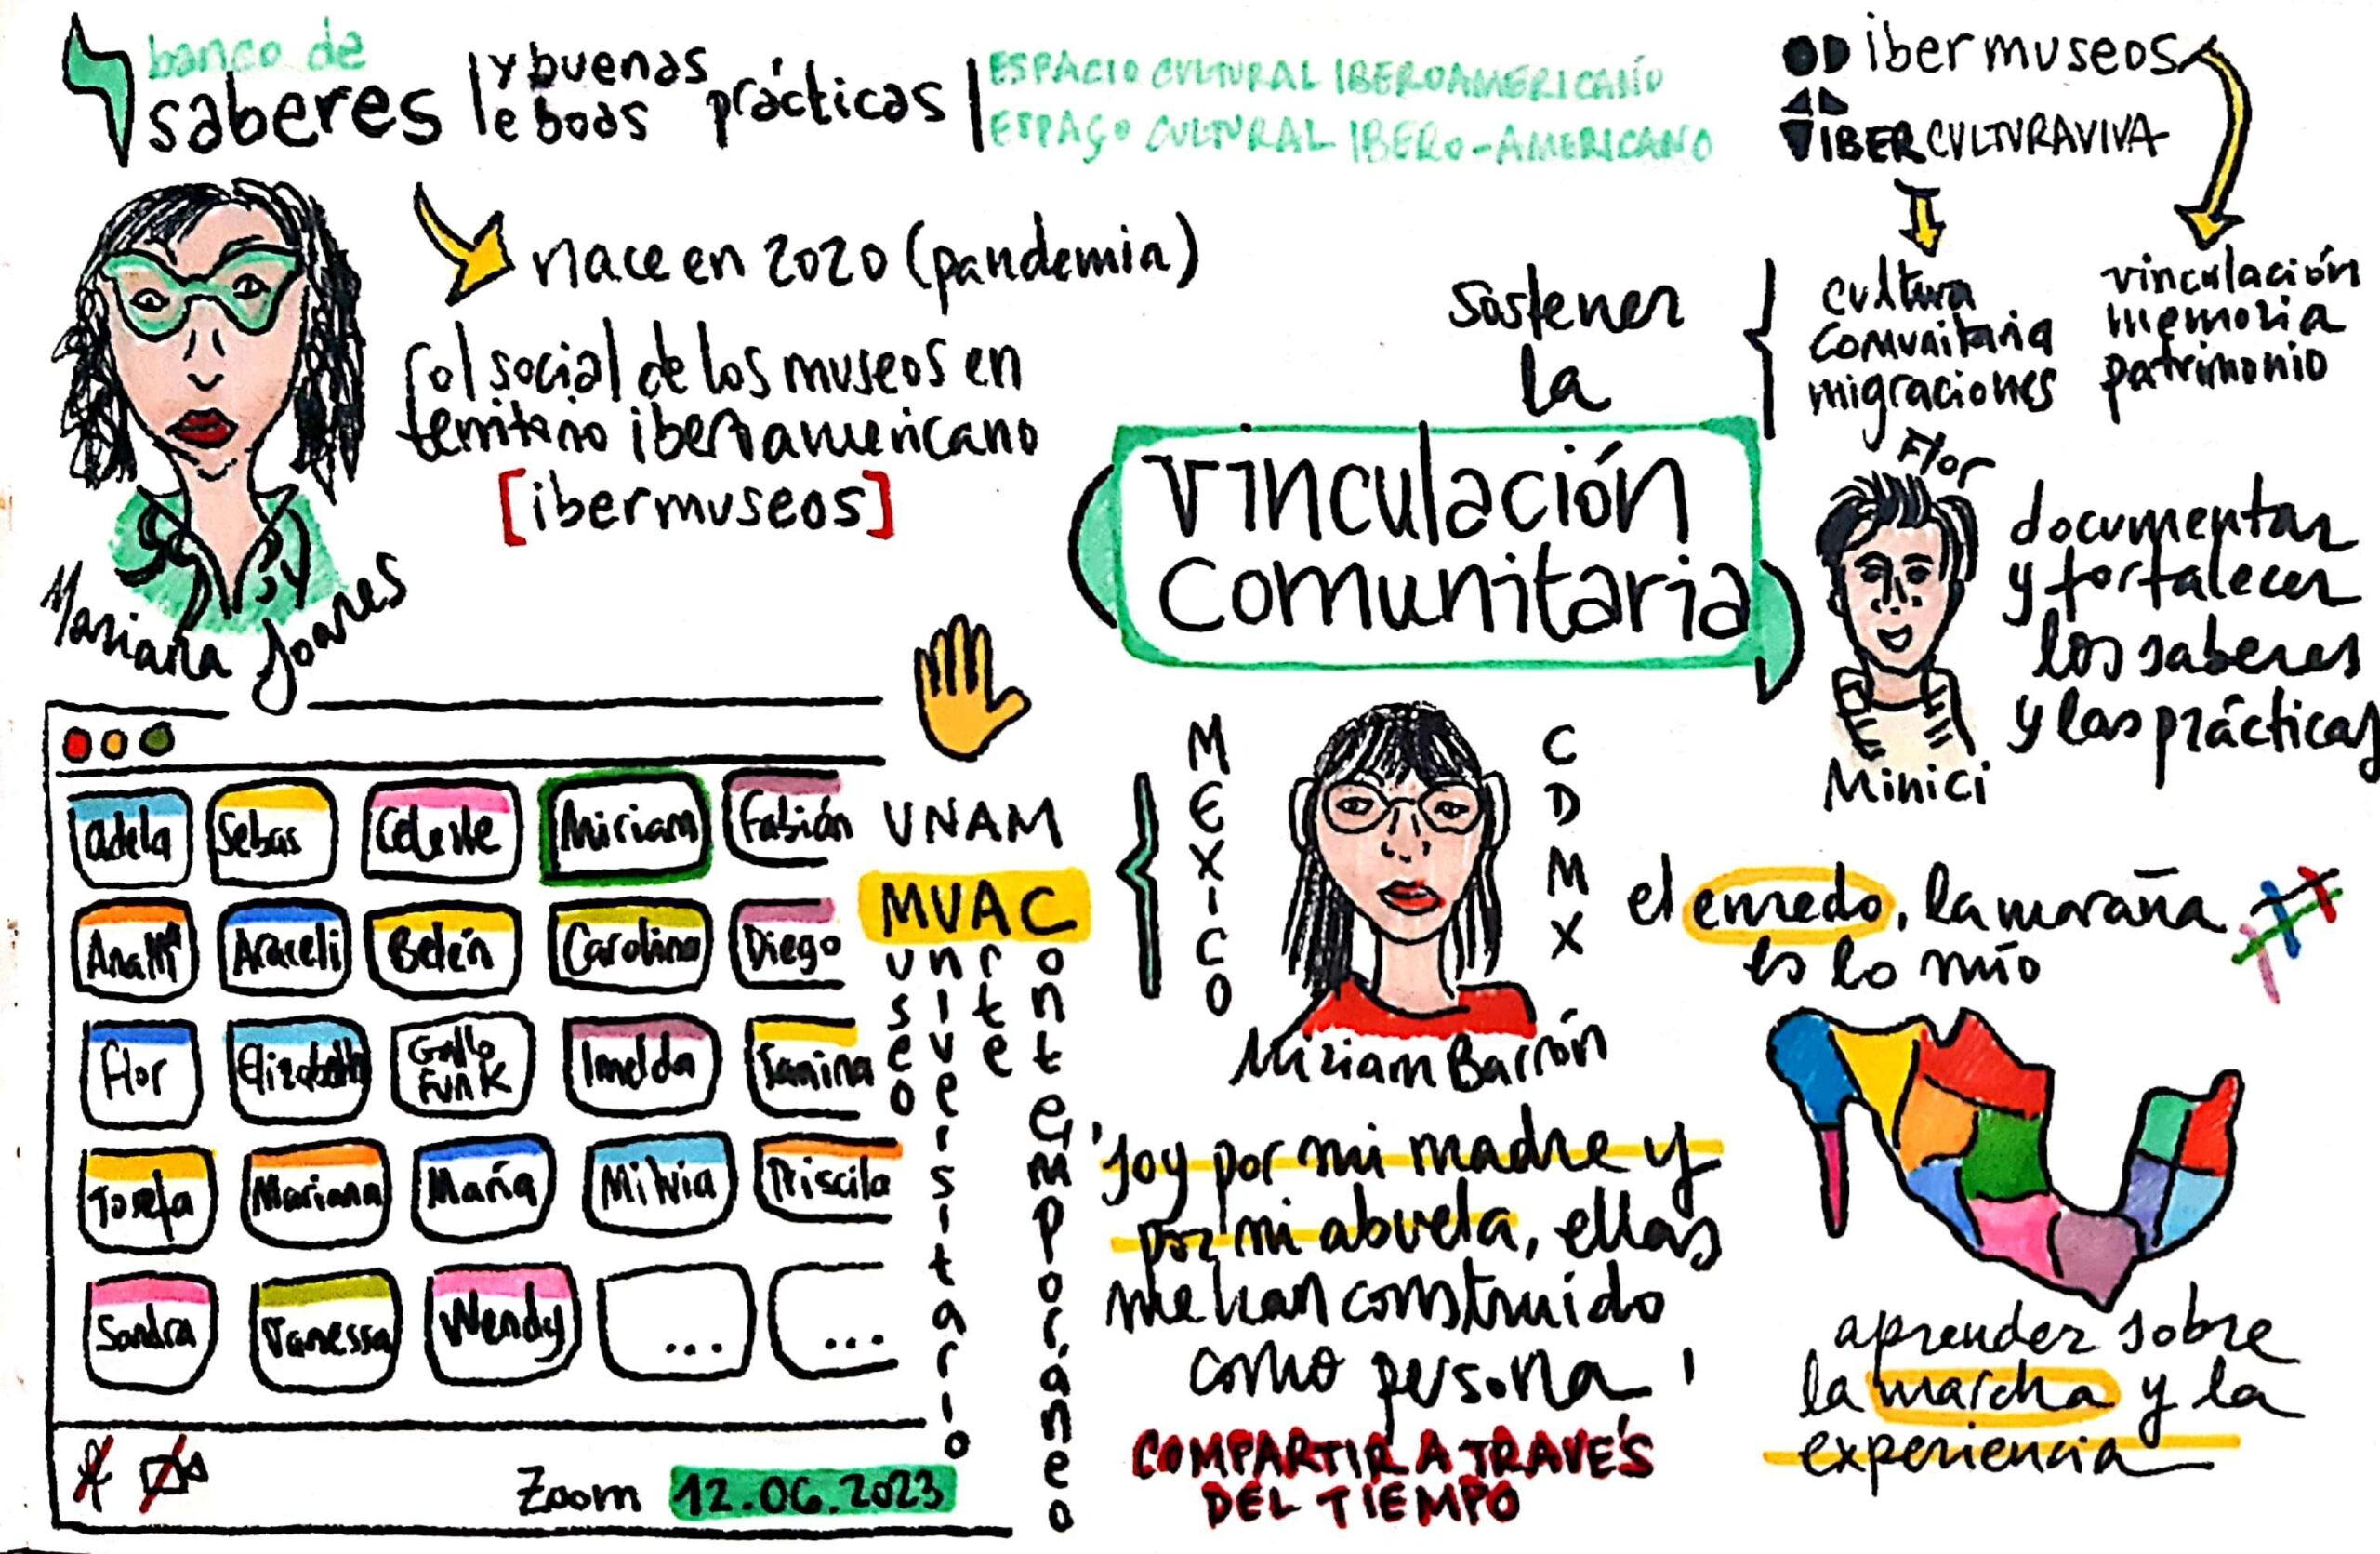 banco de
saberes
y buenas
e boas
prácticas
ESPACIO CULTURAL IBEROAMERICANO
ESPAÇO CULTURAL IBERO-AMERICANO
ibermuseos
IBERCULTURAVIVA
nace en 2020 (pandemia)
rol social de los museos en
territorio iberoamericano
[ibermuseos]
Mariana Soares
sostener
la
vinculación
comunitaria
cultura
comunitaria
migraciones
vinculación
memoria
patrimonio
Flor
Minici
documentar
y fortalecer
los saberes
y las prácticas
adela
Sebas
Celeste
Miriam
Fabián
Araceli
Belén
Carolina
Diego
Flor
Elizabeth
Gallo
Funk
Imelda
Janina
Josefa
Mariana
María
Milvia
Priscila
Sandra
Vanessa
Wendy
...
...
Zoom 12.06.2023
UNAM
MUAC
useo
niversitario
rte
ontemporáneo
MEXICO
CDMX
Miriam Barrón
'soy por mi madre y
por mi abuela, ellas
me han construido
como persona'
COMPARTIR A TRAVÉS
DEL TIEMPO
el enredo, la maraña
es lo mío
aprender sobre
la marcha y la
experiencia